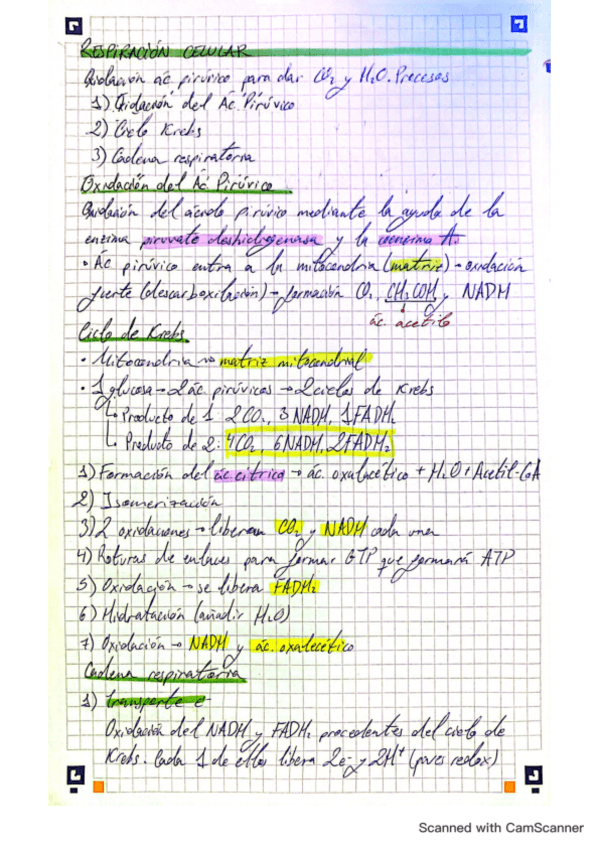 RESPIRACIÓN CELULAR
Oxidación ác. pirúvico para dar CO₂ y H₂O. Procesos
1) Oxidación del Ác. Pirúvico
2) Ciclo Krebs
3) Cadena respiratoria
Oxidación del Ác Pirúvico
Oxidación del ácido pirúvico mediante la ayuda de la
enzima piruvato deshidrogenasa y la coenzima A.
• Ác pirúvico entra a la mitocondria (matriz) → oxidación
fuerte (descarboxilación) → formación CO₂, CH₃COH, y NADH
ác. acetilo
Ciclo de Krebs
• Mitocondria → matriz mitocondrial
• 1 glucosa → 2 ác. pirúvicos → 2 ciclos de Krebs
↳ Producto de 1: 2CO₂, 3 NADH, 1 FADH₂
↳ Producto de 2: 4CO₂, 6 NADH, 2 FADH₂
1) Formación del ác. cítrico → ác. oxalacético + H₂O + Acetil-CoA
2) Isomerización
3) 2 oxidaciones → liberan CO₂ y NADH cada una
4) Roturas de enlaces para formar GTP que formará ATP
5) Oxidación → se libera FADH₂
6) Hidratación (añadir H₂O)
7) Oxidación → NADH y ác. oxalecético
Cadena respiratoria
1) Transporte e⁻
Oxidación del NADH y FADH₂ procedentes del ciclo de
Krebs. Cada 1 de ellos libera 2e⁻ y 2H⁺ (pares redox)
Scanned with CamScanner